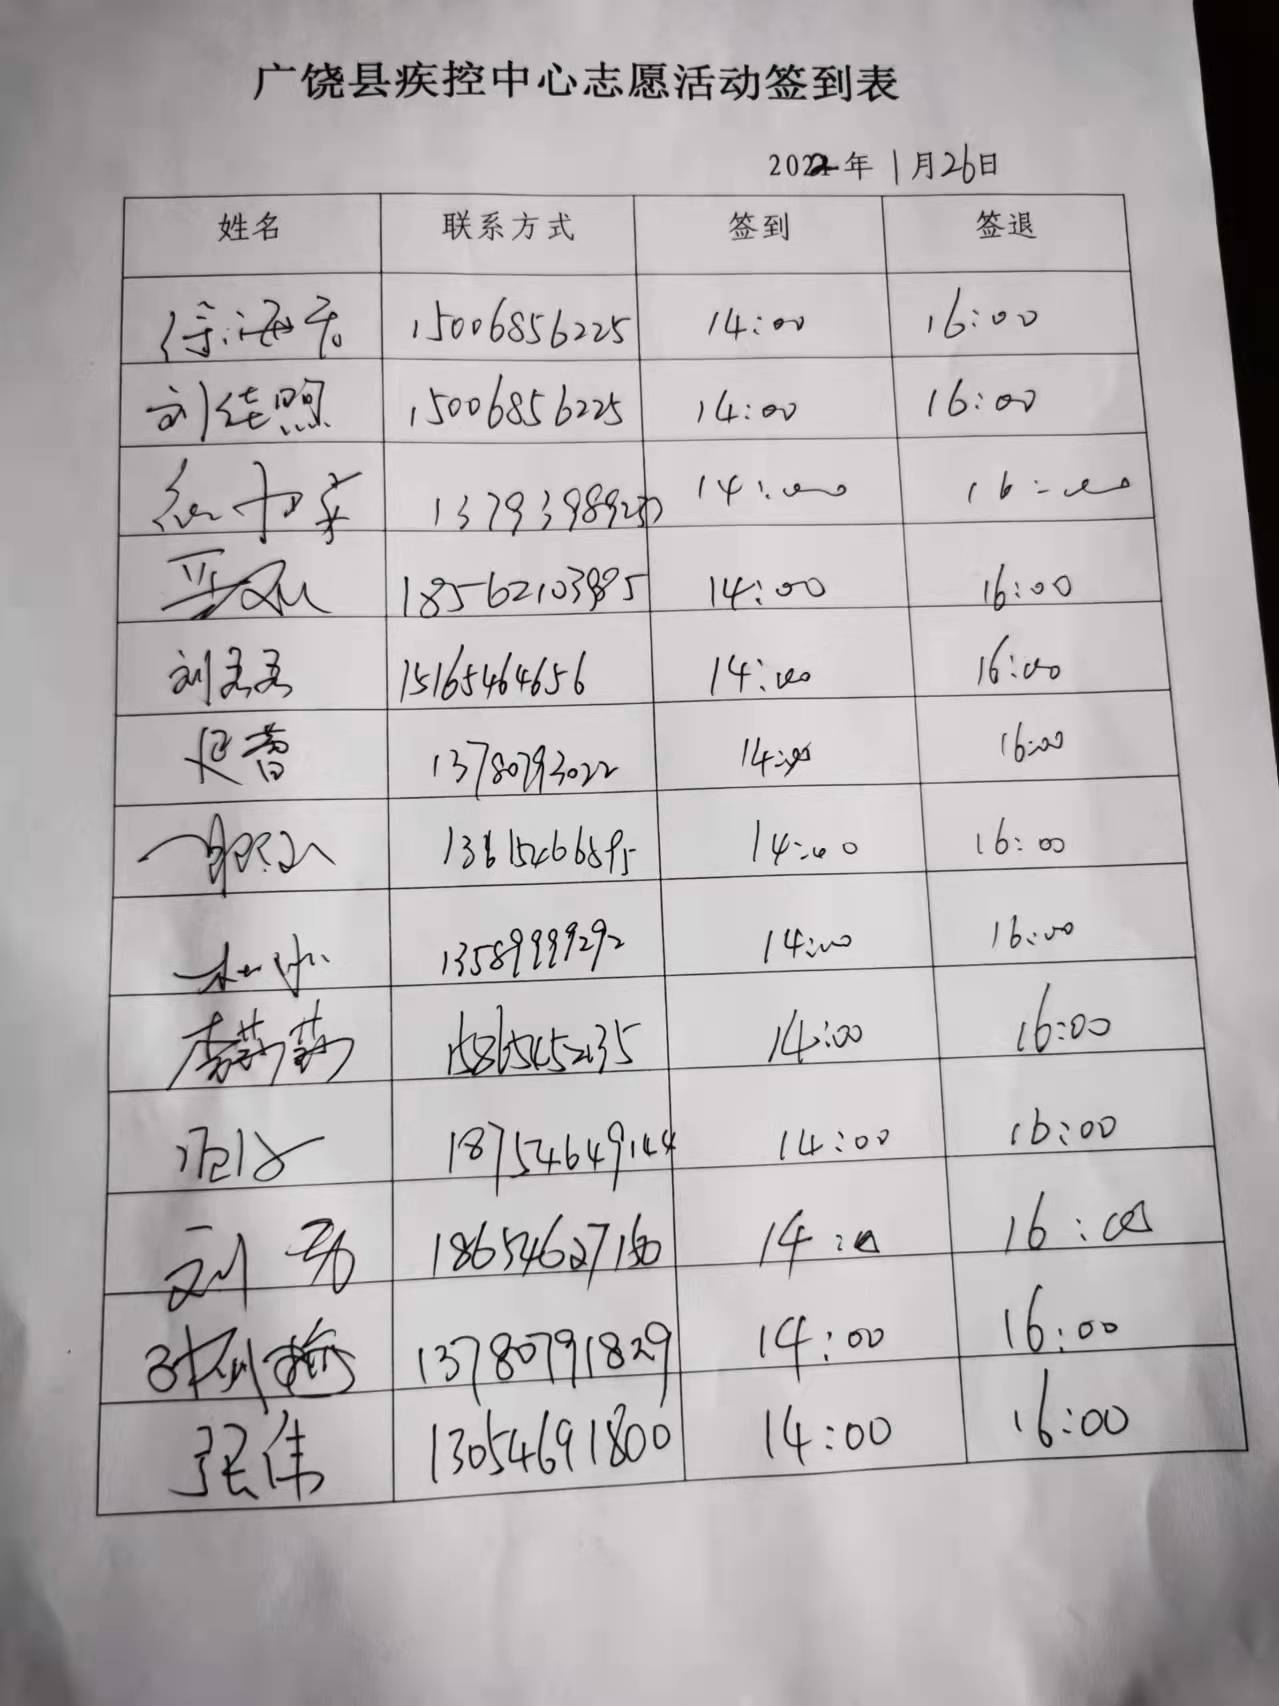 广饶县疾控中心志愿活动签到表
2022年1月26日
姓名 联系方式 签到 签退
15006856225 14:00 16:00
刘佳照 15006856225 14:00 16:00
14:00 16:00
18562103985 14:00 16:00
刘磊磊 15165464656 14:00 16:00
延蕾 13780793022 14:00 16:00
14:00 16:00
杜冰 13589999292 14:00 16:00
李莉莉 15865452135 14:00 16:00
18754649144 14:00 16:00
刘 18654627180 14:00 16:00
13780791829 14:00 16:00
张伟 13054691800 14:00 16:00